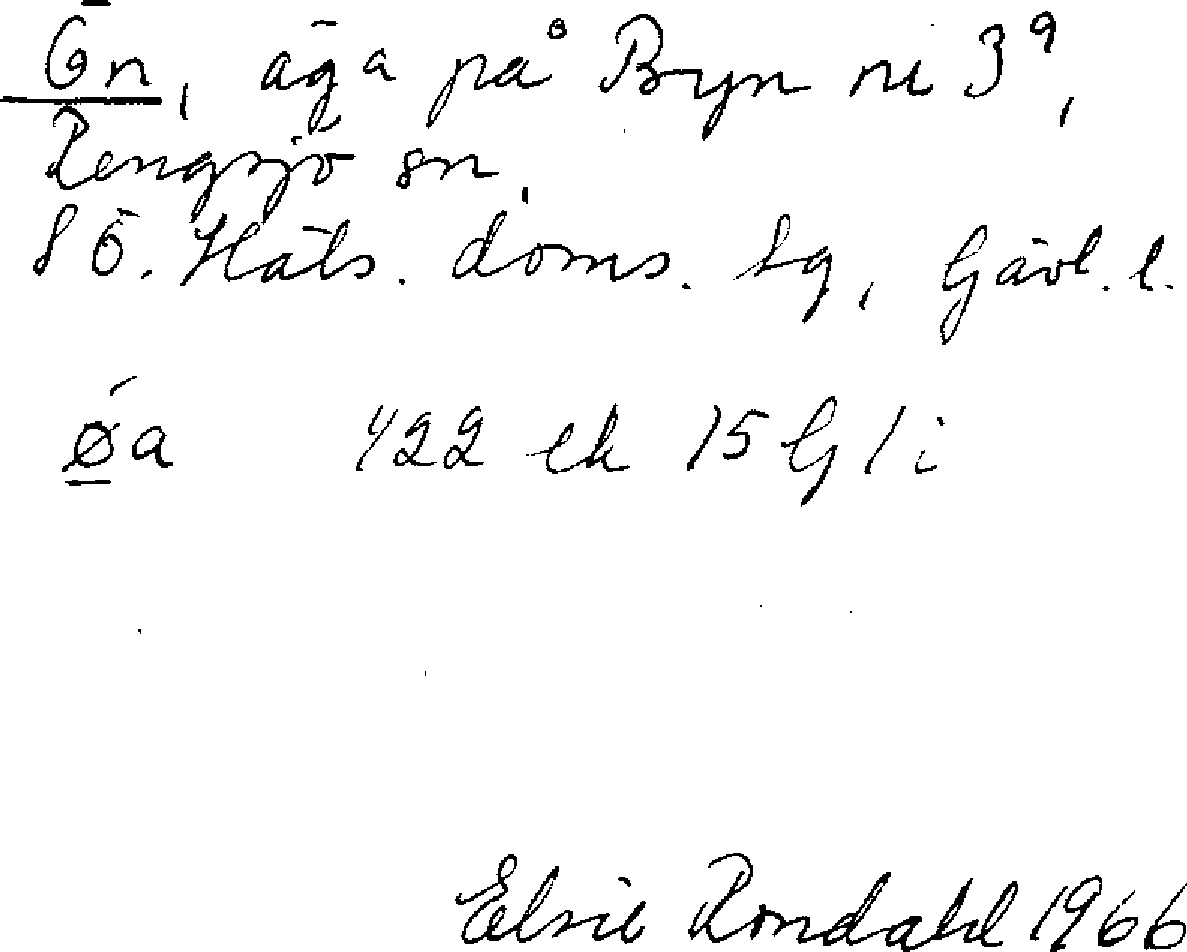 Ön, äga på Bryn nr 3⁹,
Rengsjö sn,
SÖ. Häls. doms. lg, Gävl. l.
ǿ̠a 422 ek 15 G 1 i
Elsie Rondahl 1966